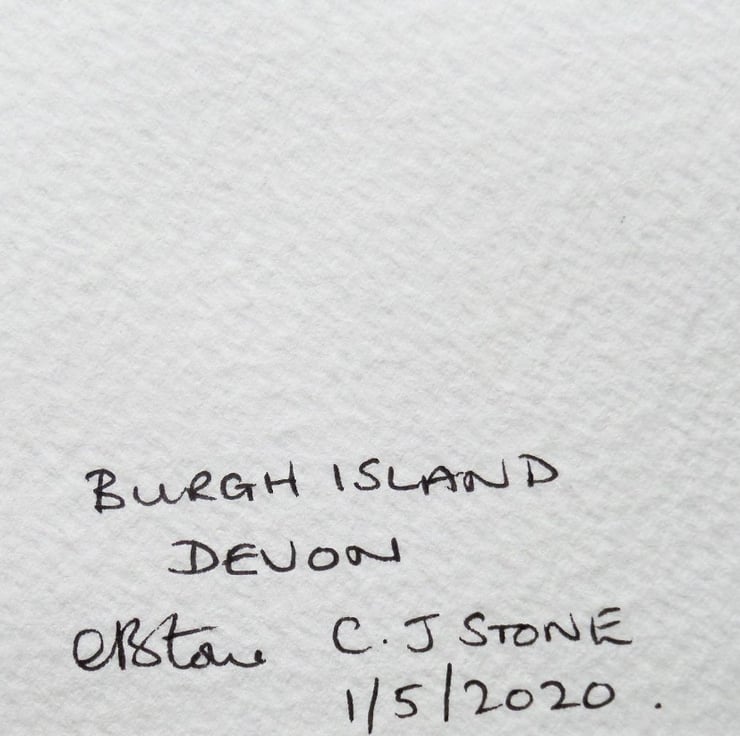 BURGH ISLAND
DEVON
C. J STONE
1/5/2020.